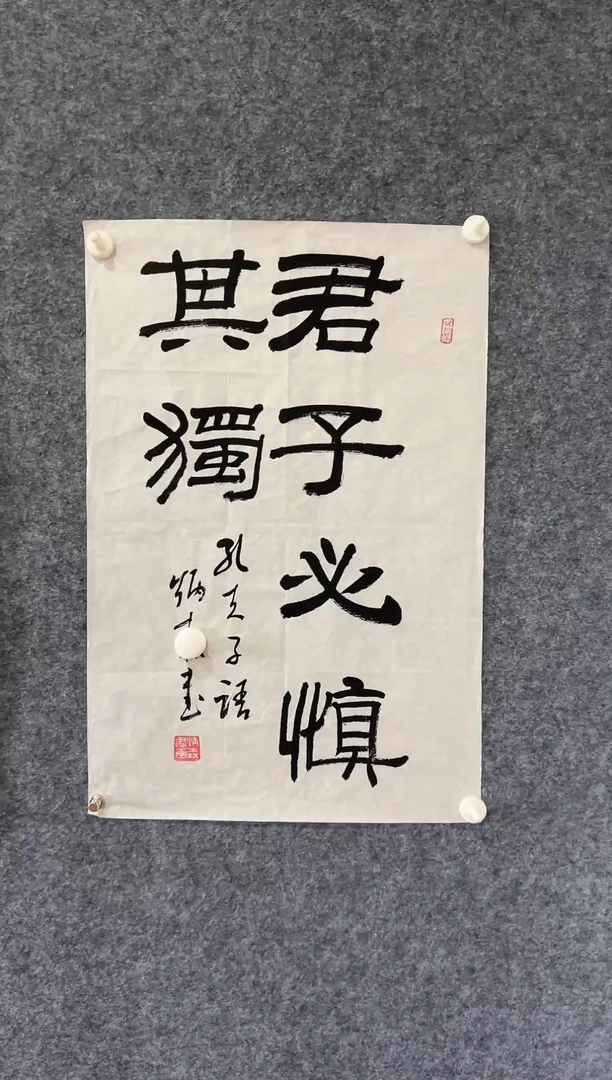 君子必慎
其獨
孔夫子語
炳
書